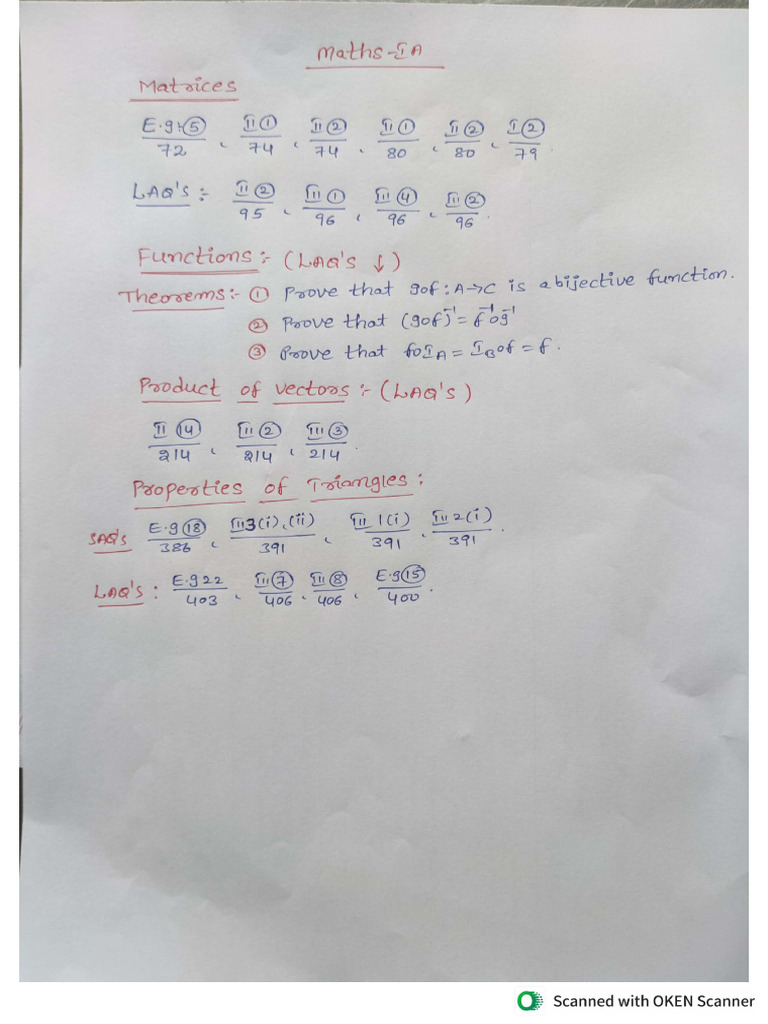 Maths-IA
Matrices
E.g:⑤/72, II①/74, II②/74, II①/80, II②/80, I②/79.
LAQ's :- II②/95, III①/96, III④/96, III②/96.
Functions :- (LAQ's ↓)
Theorems:- ① Prove that gof : A→C is a bijective function.
② Prove that (gof)⁻¹ = f⁻¹og⁻¹
③ Prove that foI_A = I_Bof = f.
Product of vectors :- (LAQ's)
II⑭/214, III②/214, III③/214.
Properties of Triangles :
SAQ's E.g⑱/386, III3(i),(ii)/391, III 1(i)/391, III 2(i)/391.
LAQ's : E.g 22/403, III⑦/406, III⑧/406, E.g⑮/400.
Scanned with OKEN Scanner